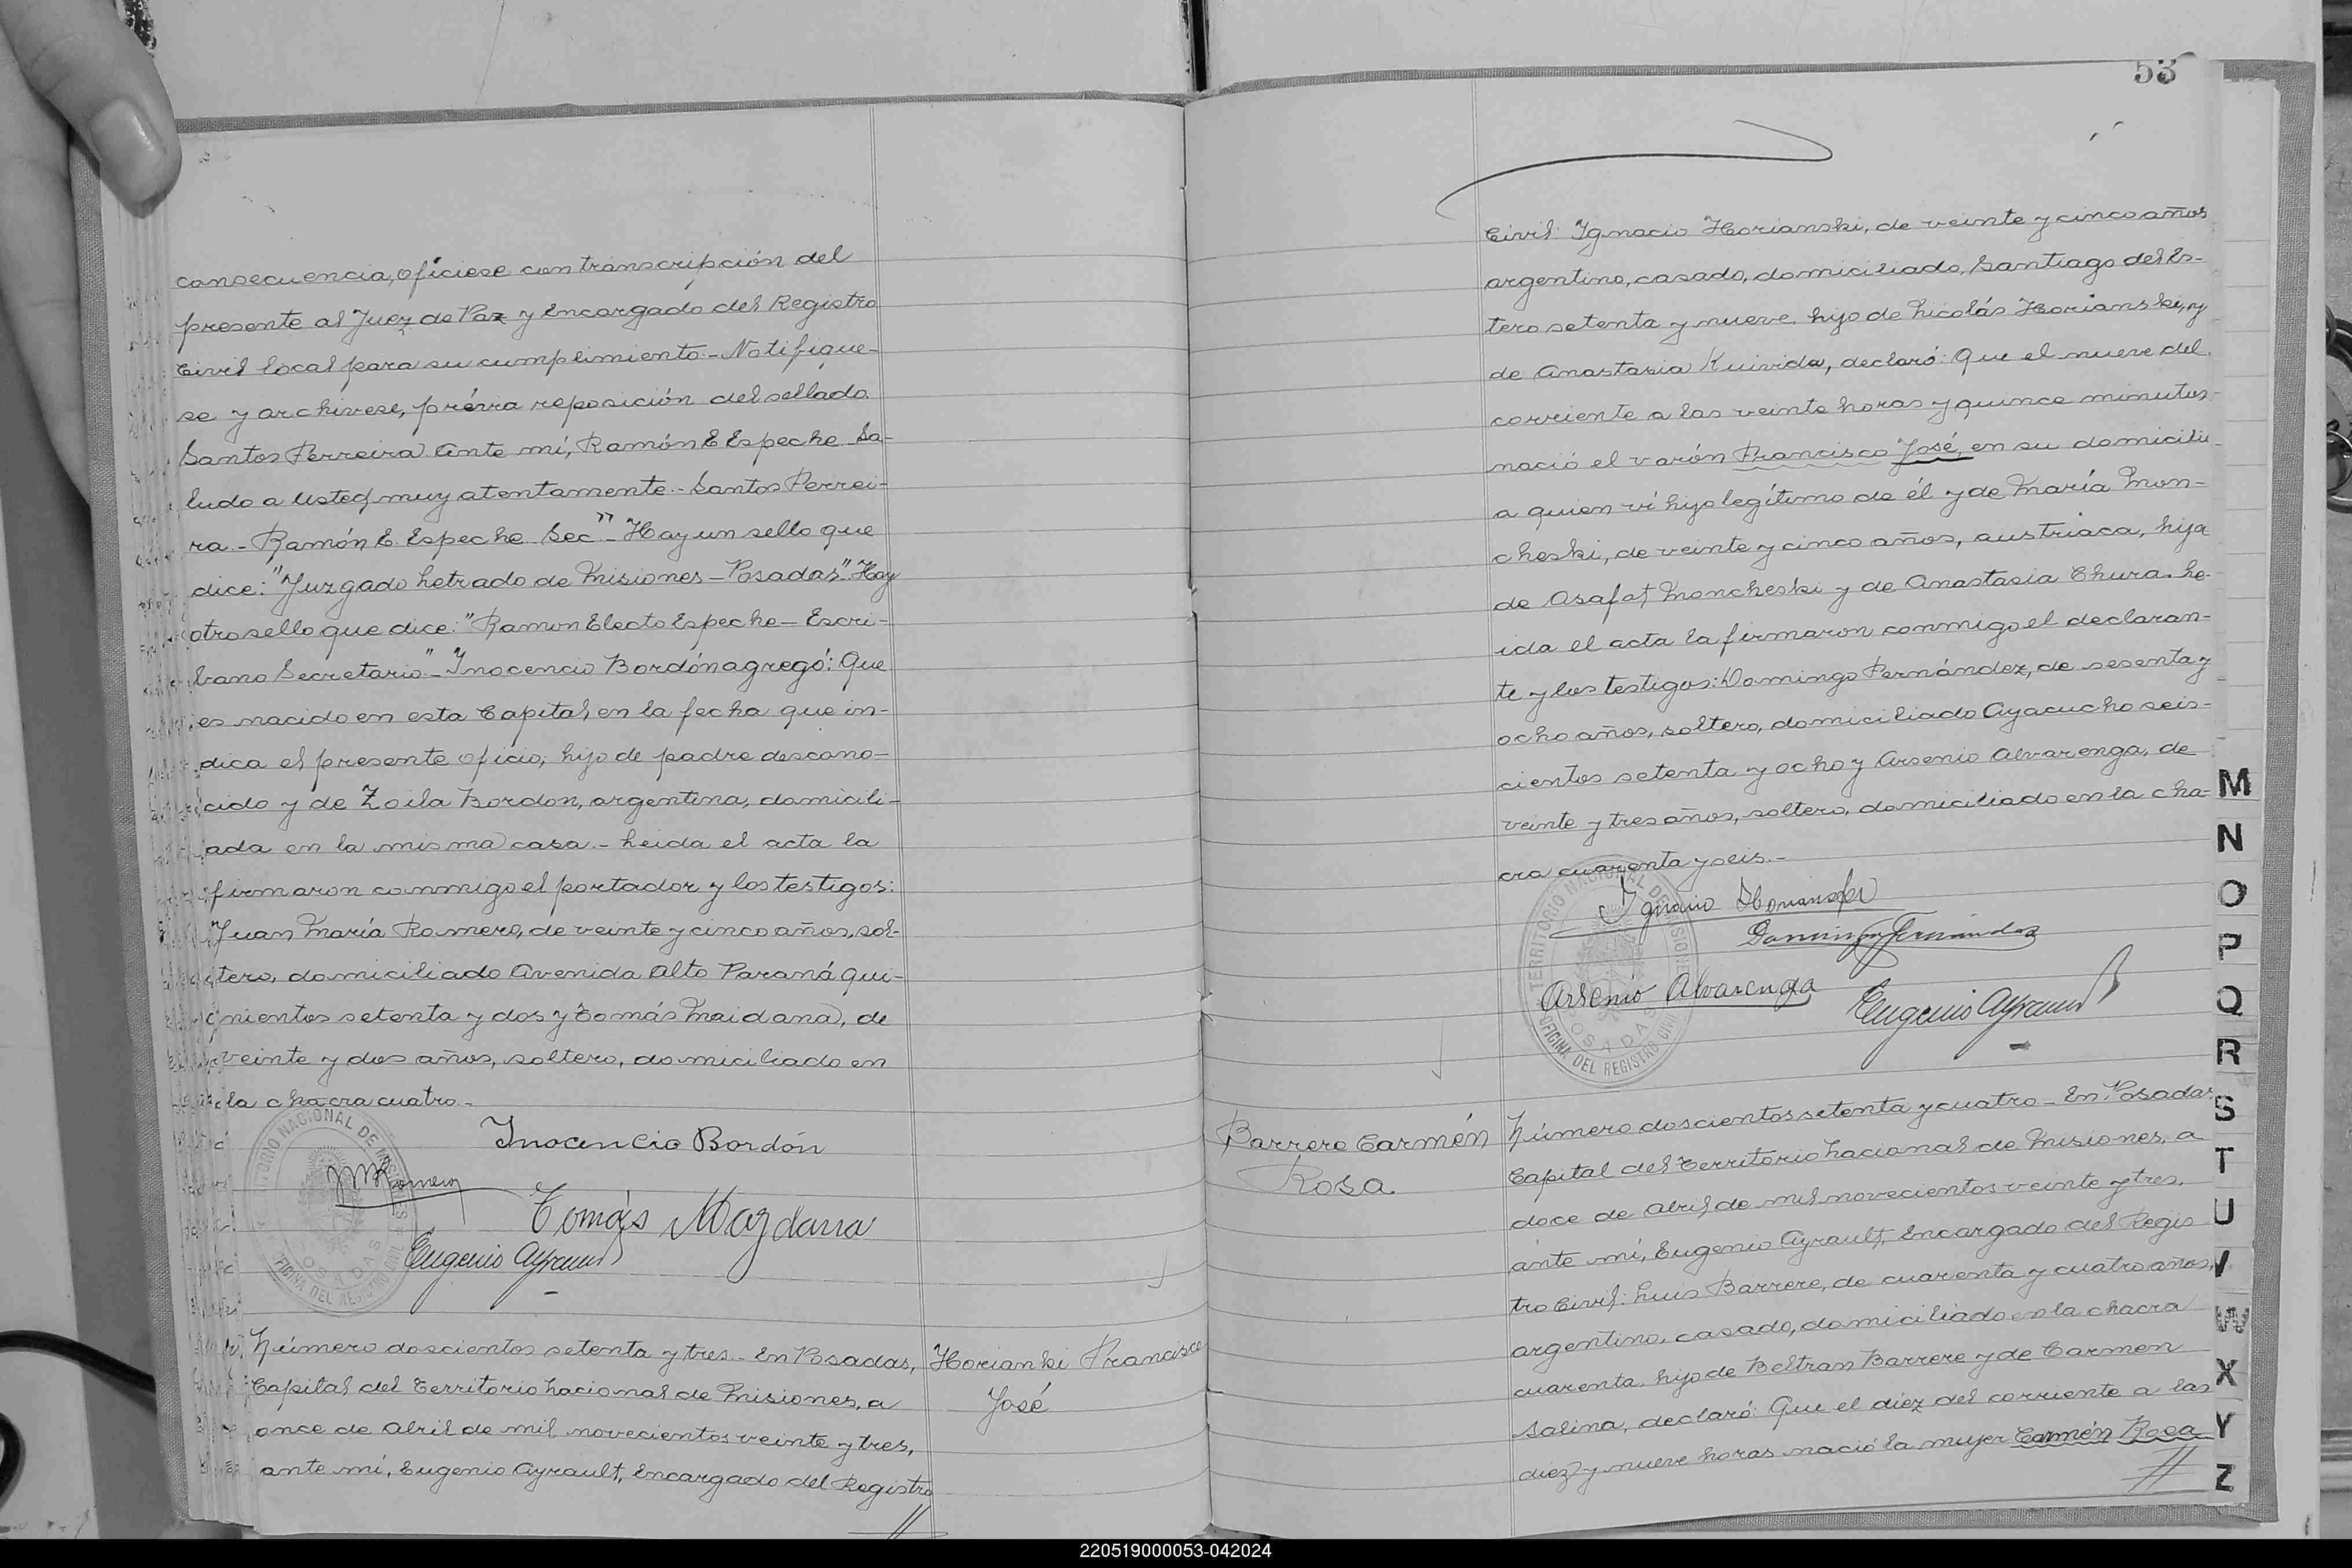 consecuencia, ofíciese con transcripción del
presente al Juez de Paz y Encargado del Registro
Civil local para su cumplimiento.- Notifíque-
se y archívese, prévia reposición del sellado.
Santos Ferreira. Ante mí, Ramón E Espeche Sa-
ludo a Usted muy atentamente.- Santos Ferrei-
ra.- Ramón E. Espeche Sec"- Hay un sello que
dice: "Juzgado Letrado de Misiones - Posadas". Hay
otro sello que dice: "Ramon Electo Espeche - Escri-
bano Secretario"- Inocencio Bordón agregó: Que
es nacido en esta Capital, en la fecha que in-
dica el presente oficio; hijo de padre descono-
cido y de Zoila Bordon, argentina, domicili-
ada en la misma casa.- Leida el acta la
firmaron conmigo el portador y los testigos:
Juan María Romero, de veinte y cinco años, sol-
tero, domiciliado Avenida Alto Paraná qui-
nientos setenta y dos y Tomás Maidana, de
veinte y dos años, soltero, domiciliado en
la chacra cuatro.-
Inocencio Bordón
JMRomero
Tomás Maydana
Eugenio Ayrault
TERRITORIO NACIONAL DE MISIONES
POSADAS
OFICINA DEL REGISTRO CIVIL
Número doscientos setenta y tres.- En Posadas,
Capital del Territorio Nacional de Misiones, a
once de Abril de mil novecientos veinte y tres,
ante mí, Eugenio Ayrault, Encargado del Registro
Horianki Francisco
José
53
Civil: Ignacio Horianski, de veinte y cinco años
argentino, casado, domiciliado, Santiago del Es-
tero setenta y nueve, hijo de Nicolás Horianski, y
de Anastasia Kuivida, declaró: Que el nueve del
corriente a las veinte horas y quince minutos
nació el varón Francisco José, en su domicili
a quien ví hijo legítimo de él y de María Mon-
cheski, de veinte y cinco años, austriaca, hija
de Asafat Moncheski y de Anastasia Chura. Le-
ida el acta la firmaron conmigo el declaran-
te y los testigos: Domingo Fernández, de sesenta y
ocho años, soltero, domiciliado Ayacucho seis-
cientos setenta y ocho y Arsenio Alvarenga, de
veinte y tres años, soltero, domiciliado en la cha-
cra cuarenta y seis.-
Ignacio Horianski
Domingo Fernández
Arsenio Alvarenga
Eugenio Ayrault
TERRITORIO NACIONAL DE MISIONES
POSADAS
OFICINA DEL REGISTRO CIVIL
Barrere Carmén
Rosa
Número doscientos setenta y cuatro - En Posadas
Capital del Territorio Nacional de Misiones, a
doce de Abril de mil novecientos veinte y tres,
ante mí, Eugenio Ayrault, Encargado del Regis
tro Civil: Luis Barrere, de cuarenta y cuatro años,
argentino, casado, domiciliado en la chacra
cuarenta, hijo de Beltran Barrere y de Carmen
Salina, declaró: Que el diez del corriente a las
diez y nueve horas nació la mujer Carmén Rosa
M
N
O
P
Q
R
S
T
U
V
W
X
Y
Z
220519000053-042024